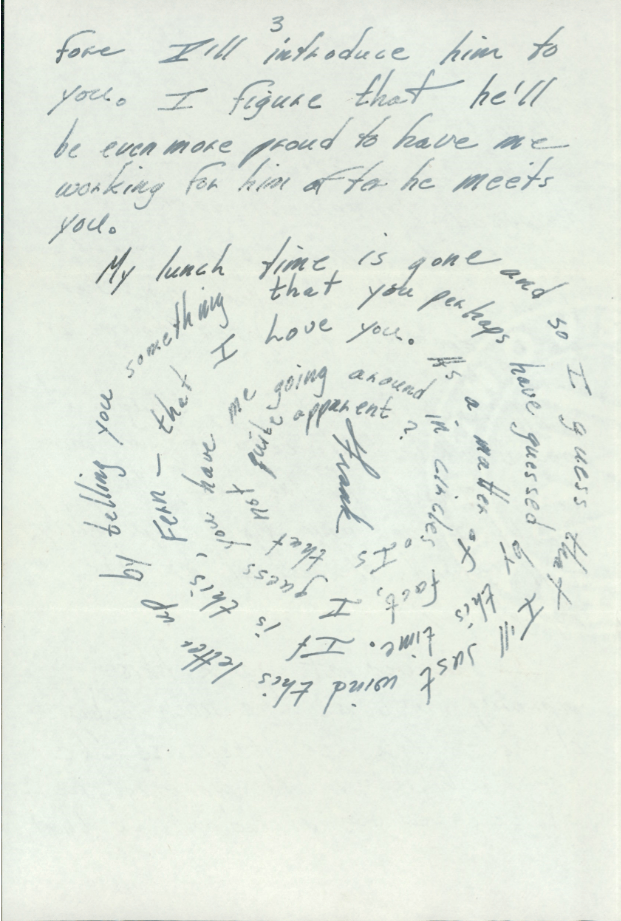 3
fore I'll introduce him to
you. I figure that he'll
be even more proud to have me
working for him after he meets
you.
My lunch time is gone and so I guess that I'll just wind this letter up by telling you something
that you perhaps have guessed by this time. It is this, Fern — that I Love you.
As a matter of fact, I guess you have me going around in circles. Is that not quite apparent?
Frank